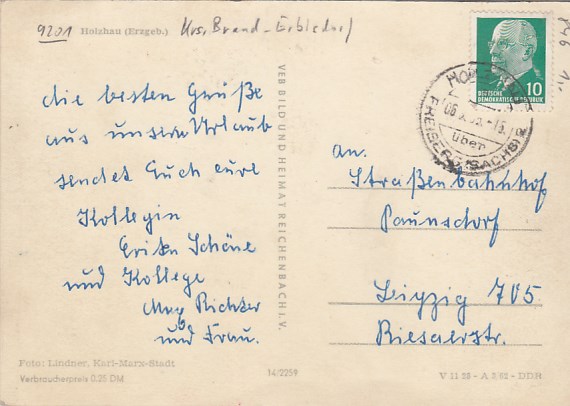 9201 Holzhau (Erzgeb.) Krs. Brand-Erbisdorf
die besten Grüße
aus unserm Urlaub
sendet Euch eure
Kollegin
Erika Schöne
und Kollege
Max Richter
und Frau.
Foto: Lindner, Karl-Marx-Stadt
Verbraucherpreis 0.25 DM
VEB BILD UND HEIMAT REICHENBACH I. V.
14/2259
DEUTSCHE
DEMOKRATISCHE REPUBLIK
10
über
FREIBERG (SACHS)
an.
Straßenbahnhof
Paunsdorf
Leipzig 705
Riesaerstr.
V 11 28 - A 2/62 - DDR